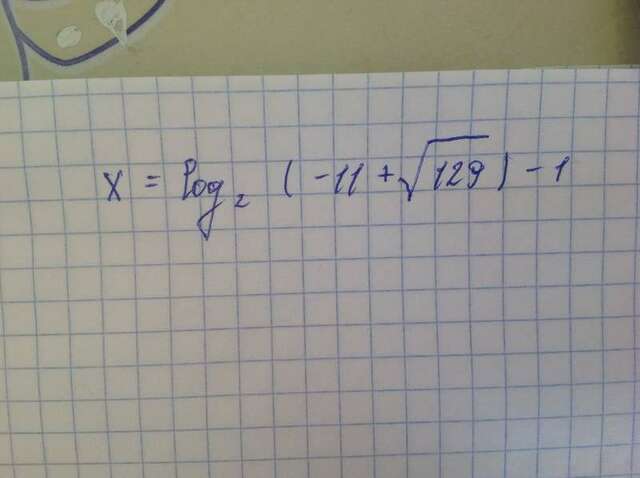 x = log₂ (-11 + √129) - 1